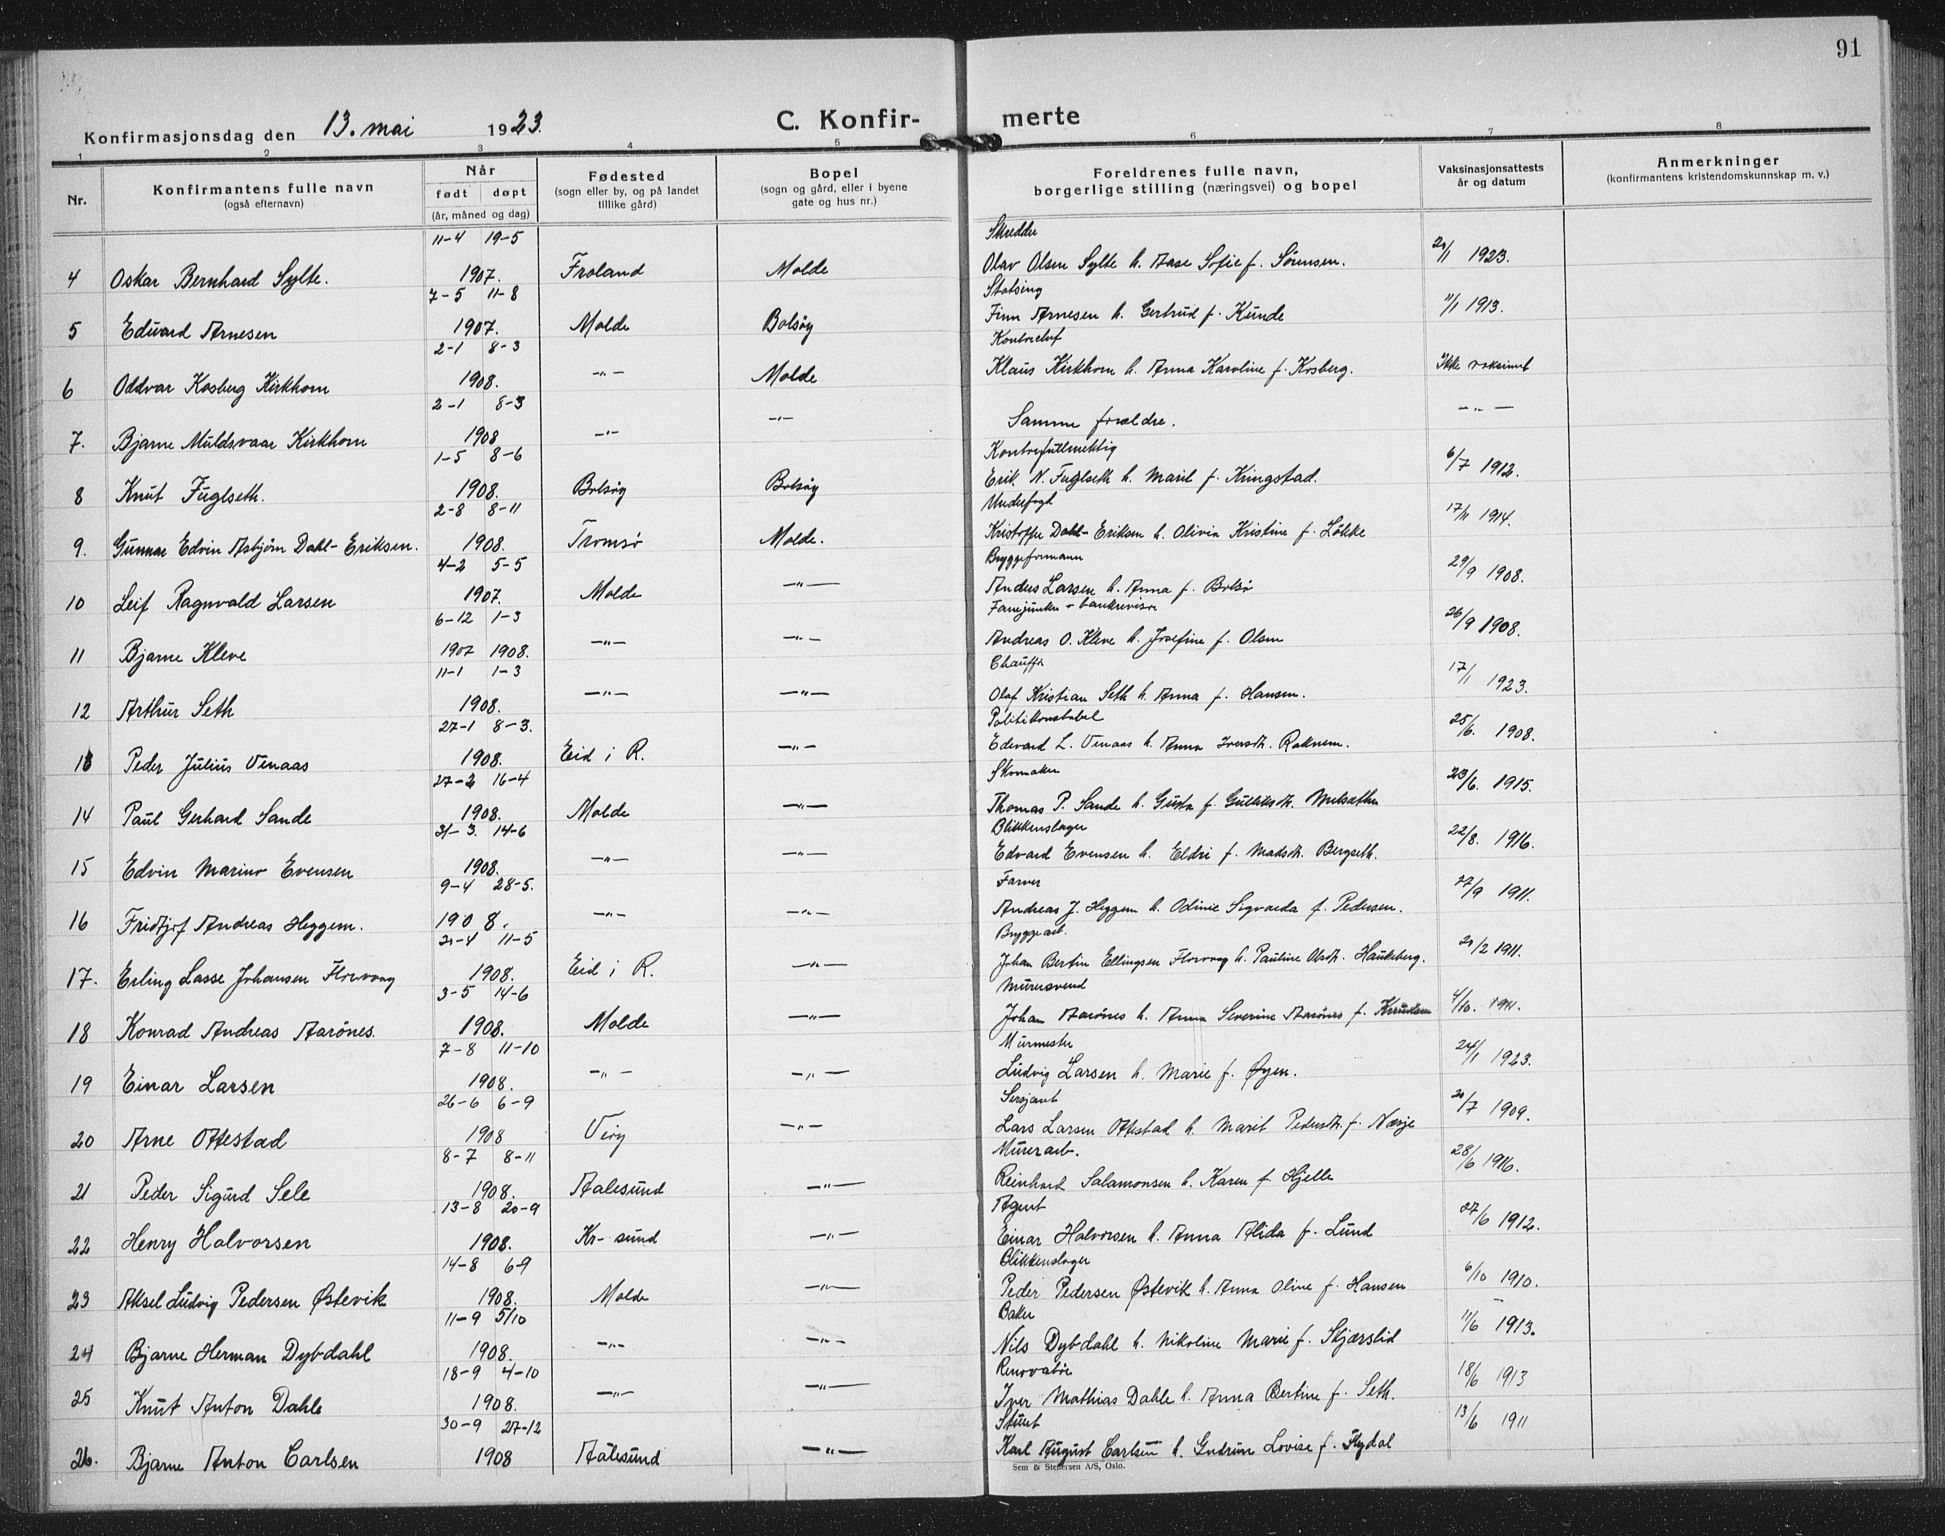 91
Konfirmasjonsdag den 13. mai 1923. C. Konfir- merte
1 2 3 4 5 6 7 8
Nr. Konfirmantens fulle navn (også efternavn) Når født døpt (år, måned og dag) Fødested (sogn eller by, og på landet tillike gård) Bopel (sogn og gård, eller i byene gate og hus nr.) Foreldrenes fulle navn, borgerlige stilling (næringsvei) og bopel Vaksinasjonsattests år og datum Anmerkninger (konfirmantens kristendomskunnskap m. v.)
11-4 19-5 Skredder
4 Oskar Bernhard Sylte. 1907. Froland Molde Olav Olsen Sylte h. Aase Sofie f. Sörensen. 1923.
7-5 11-8
5 Edvard Arnesen 1907. Molde Bolsøy Finn Arnesen h. Gertrud f. Kunde 11/1 1913.
2-1 8-3
6 Oddvar Kosberg Kirkhorn 1908. -"- Molde Klaus Kirkhorn h. Anna Karoline f. Kosberg. Ikke vaksinert
2-1 8-3
7. Bjarne Muldsvaar Kirkhorn 1908 -"- -"- Samme forældre. -"-
1-5 8-6 Kontorfullmektig
8 Knut Fuglseth. 1908. Bolsøy Bolsøy Erik N. Fuglseth h. Marit f. Kringstad. 6/7 1912.
2-8 8-11 Underfogd
9. Gunnar Edvin Asbjørn Dahl-Eriksen. 1908. Tromsø Molde. Kristoffer Dahl-Eriksen h. Olivia Kristine f. Løkke 17/11 1914.
4-2 5-5 Bryggeformann
10 Leif Ragnvald Larsen 1907. Molde -"- Anders Larsen h. Anna f. Bolsø 29/9 1908.
6-12 1-3 Fanejunker + bankrevisor
11 Bjarne Kleve 1907 1908. -"- -"- Andreas O. Kleve h. Josefine f. Olsen 26/9 1908.
11-1 1-3 Chauffør
12 Arthur Seth 1908. -"- -"- Olaf Kristian Seth h. Anna f. Hansen. 17/1 1923.
27-1 8-3. Politikonstabel
13 Peder Julius Venaas 1908. Eid i R. -"- Edevard L. Venaas h. Anna Iversdt. Raknem. 25/6. 1908.
27-2 16-4 Skomaker
14 Paul Gerhard Sande 1908. Molde -"- Thomas P. Sande h. Gusta f. 23/6. 1915.
31-3. 14-6 Blikkenslager
15 Edvin Marino Evensen 1908. -"- -"- Edvard Evensen h. Eldri f. Madsdt. Bergseth. 22/8. 1916.
9-4 28-5. Farver
16 Fridtjof Andreas Heggem. 1908. -"- -"- Andreas J. Heggem h. Odinie Sigvarda f. Pedersen. 27/9 1911.
21-4 11-5 Bryggearb.
17. Erling Lasse Johansen Flovaag 1908. Eid i R. -"- Johan Bertin Ellingsen h. Pauline Olsdt. Haukeberg. 1911.
3-5 14-6 Murersvend
18 Konrad Andreas Aarönes. 1908. Molde -"- Johan Aarönes h. Anna Severine Aarönes f. Knudsen 4/10. 1911.
7-8 11-10 Murmester
19 Einar Larsen 1908. -"- -"- Ludvig Larsen h. Marie f. Øyen. 24/1 1923.
26-6 6-9 Sersjant
20 Arne Ottestad 1908 Veøy -"- Lars Larsen Ottestad h. Marit Pedersdt. f. Næsje 20/7 1909.
8-7 8-11 Murerarb.
21 Peder Sigurd Sele 1908. Aalesund -"- Reinhard Salamonsen h. Karen f. Hjelle 28/6 1916.
13-8 20-9 Agent
22 Henry Halvorsen 1908. Kr-sund -"- Einar Halvorsen h. Anna Alida f. Lund 27/6 1912.
14-8 6-9 Blikkenslager
23 Aksel Ludvig Pedersen Østevik 1908. Molde -"- Peder Pedersen Østevik h. Anna Oline f. Hansen 6/10 1910.
11-9 5/10 Baker
24 Bjarne Herman Dybdahl 1908. -"- -"- Nils Dybdahl h. Nikoline Marie f. Skjærslid 11/6 1913.
18-9 4-10 Renovatør
25 Knut Anton Dahle 1908. -"- -"- Iver Mathias Dahle h. Anna Bertine f. Seth. 18/6 1913
30-9 27-12 Stuert
26. Bjarne Anton Carlsen 1908 Aalesund -"- Karl August Carlsen h. Gudrun Lovise f. Flydal 13/6 1911
Sem & Stenersen A/S, Oslo.